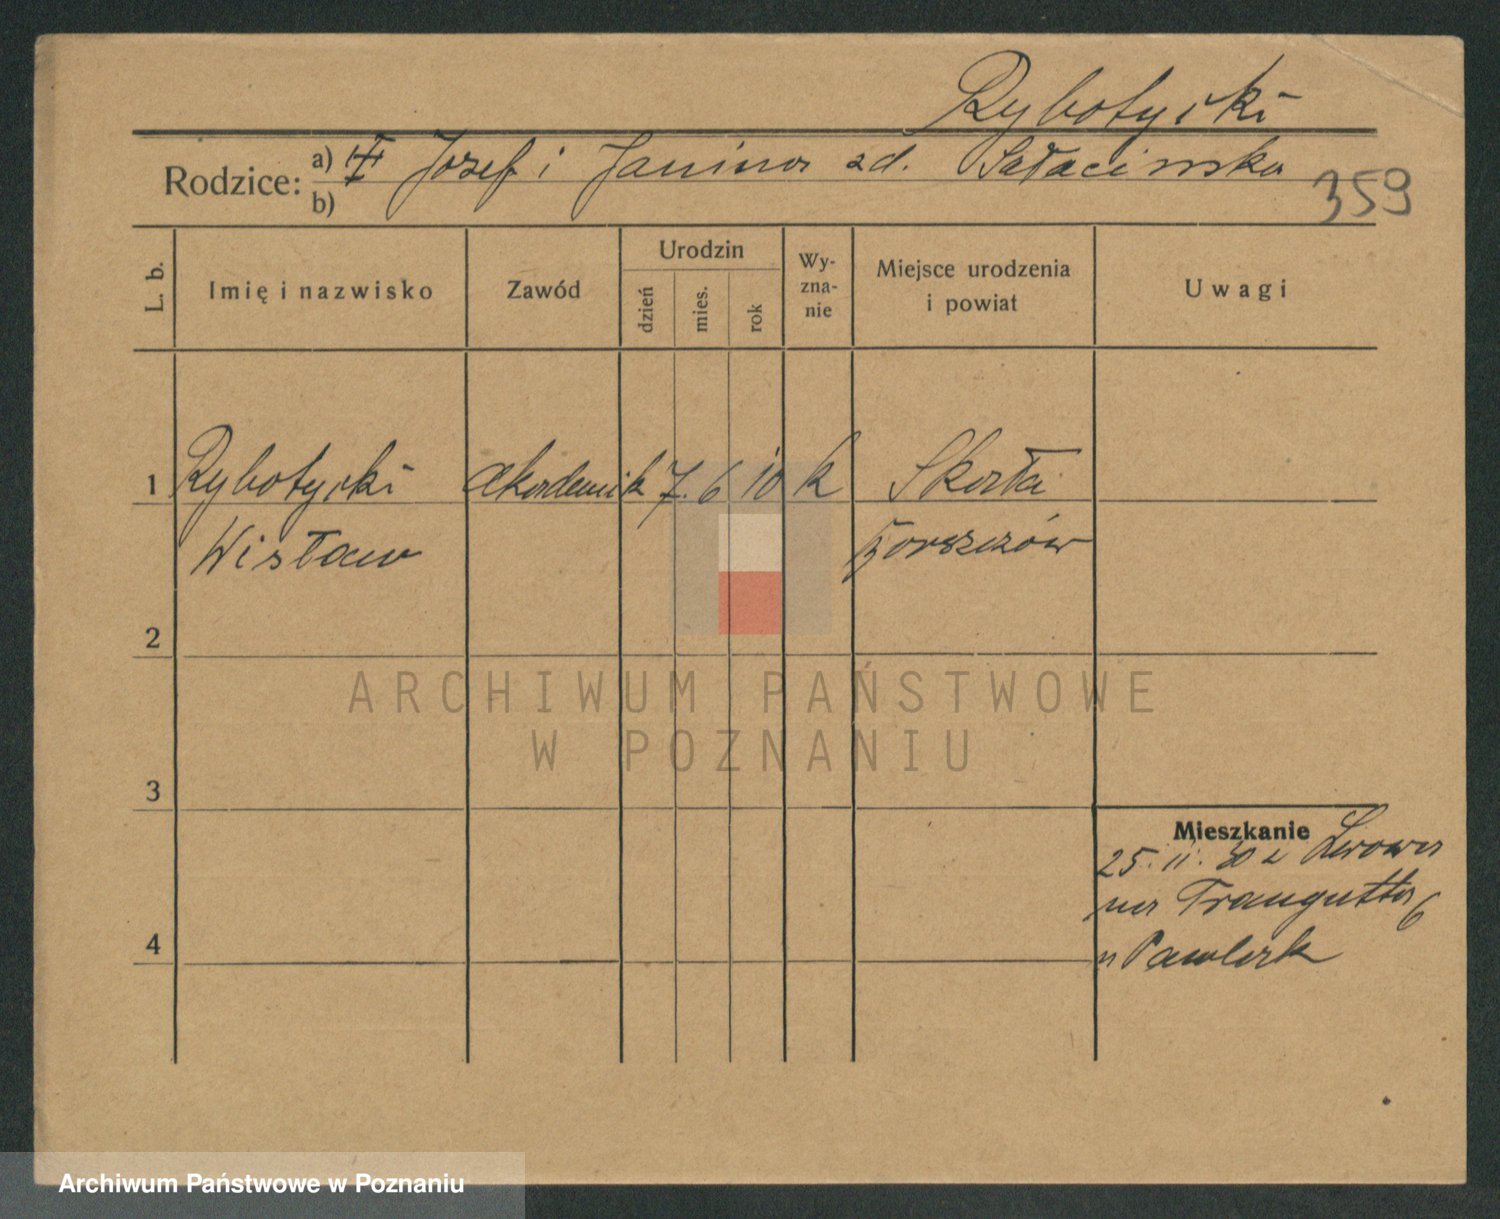 Rybotycki
Rodzice: a) Józef i Janina zd. Sałacinska
b)
359
L. b.
Imię i nazwisko
Zawód
Urodzin
dzień
mies.
rok
Wy-
zna-
nie
Miejsce urodzenia
i powiat
Uwagi
1 Rybotycki akademik 7. 6 10 k Skała
Wisław Borszczów
2
ARCHIWUM PAŃSTWOWE
W POZNANIU
3
Mieszkanie
25.11.30 z Lwowa
na Trauguta 6
u Pawlak
4
Archiwum Państwowe w Poznaniu